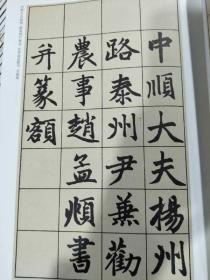 中順大夫楊州
路泰州尹兼勸
農事趙孟頫書
并篆額